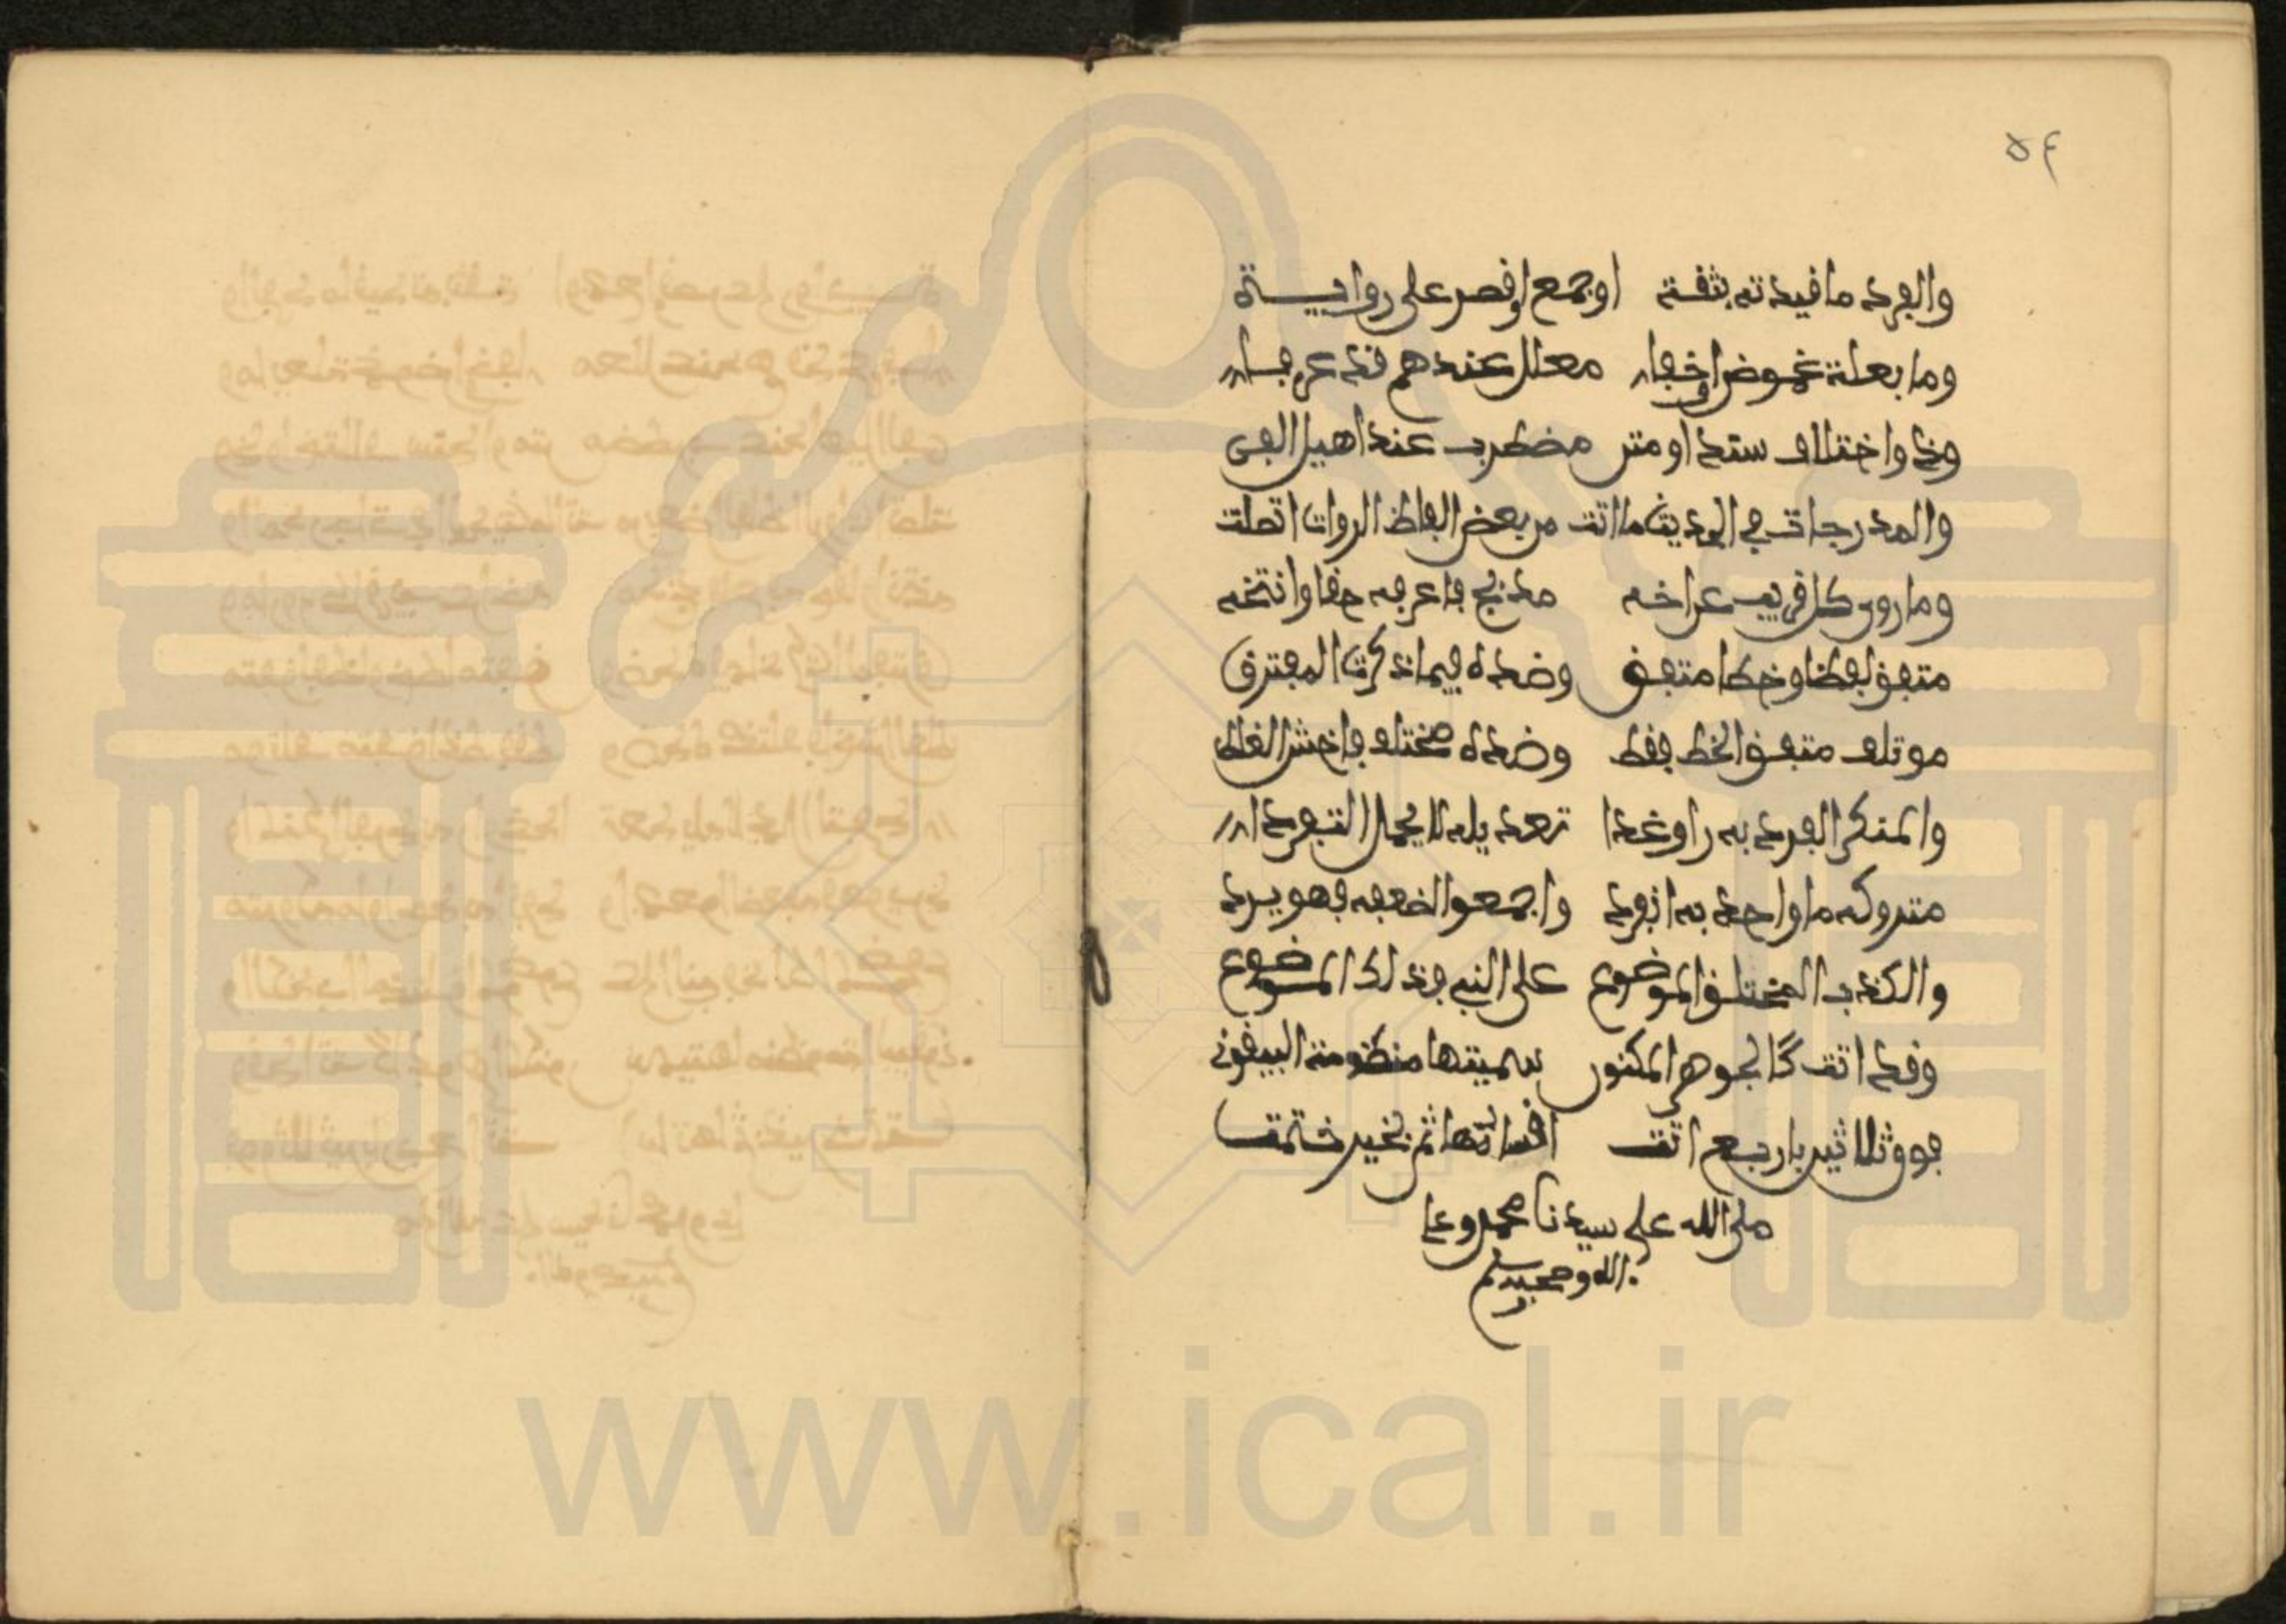 ٥٤
والفرد ما قيدته بثقة اوجمع او قصر على رواية
وما بعلة غموض او خفا معلل عندهم قد عرفا
وذو اختلاف سند او متن مضطرب عند اهيل الفن
والمدرجات في الحديث ما اتت من بعض الفاظ الروات اتصلت
وما روى كل قريب عن اخه مدبج فاعرفه حقا وانتخه
متفق لفظا وخطا متفق وضده فيما ذكرت المفترق
موتلف متفق الخط فقط وضده مختلف فاخش الغلط
والمنكر الفرد به راو غدا تعديله لا يحمل التفردا
متروكه ما واحد به انفرد واجمعوا لضعفه فهو يرد
والكذب المختلق الموضوع على النبي فذلك الموضوع
وقد اتت كالجوهر المكنون سميتها منظومة البيقوني
فوق ثلاثين باربع اتت اقسامها ثم بخير ختمت
صلى الله على سيدنا محمد وعلى
اله وصحبه وسلم
www.ical.ir